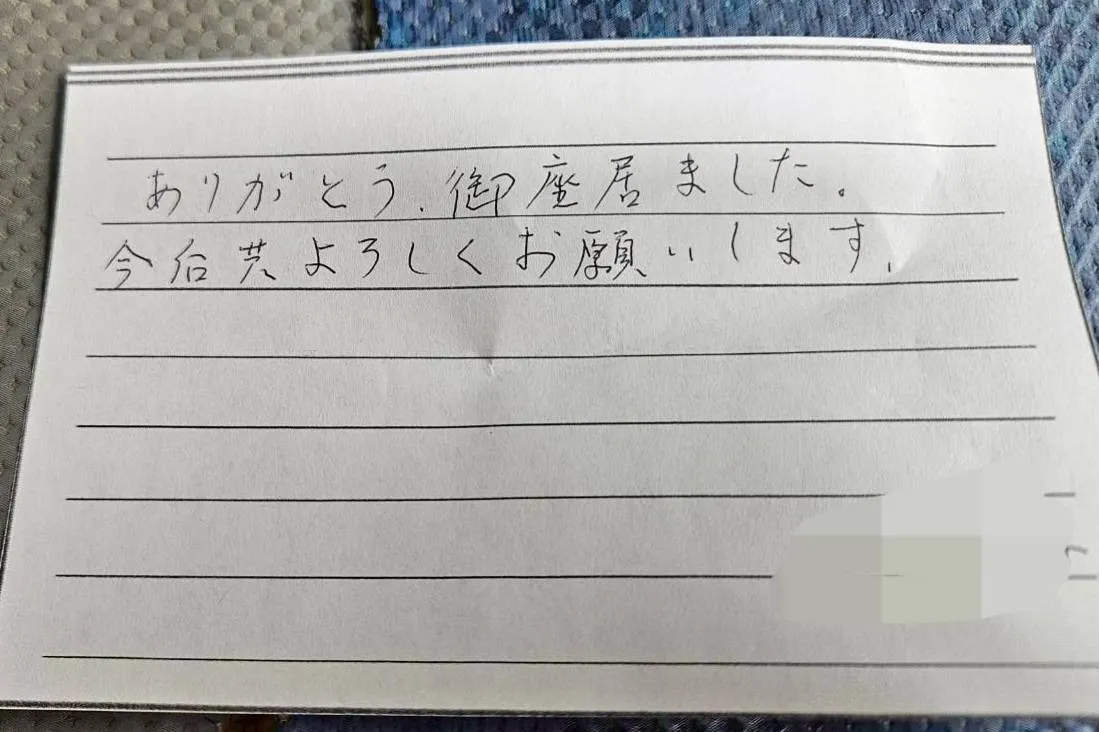 ありがとう.御座居ました。
今后共よろしくお願いします.